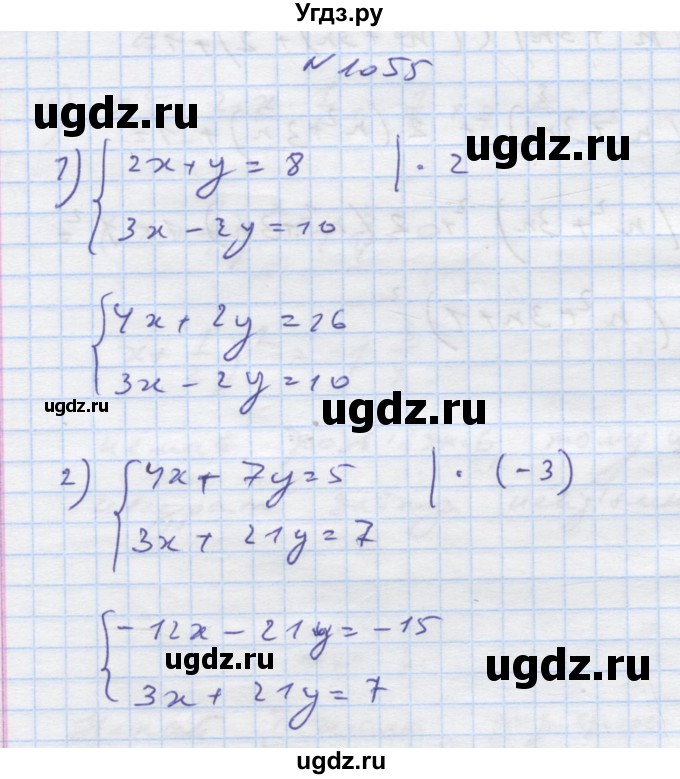 Угдз.ру
N 1055
ugdz.ru
ugdz.ru
1) { 2x + y = 8 | · 2
3x - 2y = 10
{ 4x + 2y = 16
3x - 2y = 10
ugdz.ru
ugdz.ru
2) { 4x + 7y = 5 | · (-3)
3x + 21y = 7
ugdz.ru
{ -12x - 21y = -15
ugdz.ru
ugdz.ru
3x + 21y = 7
ugdz.ru